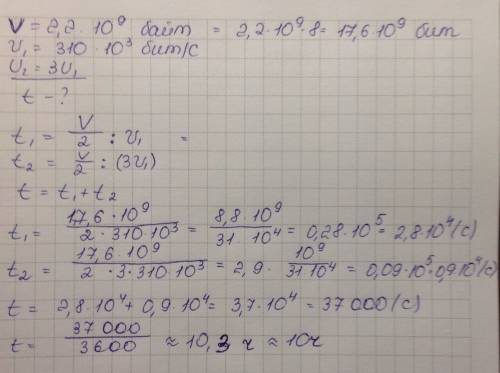 V = 2,2 · 10⁹ байт = 2,2 · 10⁹ · 8 = 17,6 · 10⁹ бит
υ₁ = 310 · 10³ бит/с
υ₂ = 3υ₁
t - ?
t₁ = V/2 : υ₁ =
t₂ = V/2 : (3υ₁)
t = t₁ + t₂
t₁ = 17,6 · 10⁹ / 2 · 310 · 10³ = 8,8 · 10⁹ / 31 · 10⁴ = 0,28 · 10⁵ = 2,8 · 10⁴ (с)
t₂ = 17,6 · 10⁹ / 2 · 3 · 310 · 10³ = 2,9 · 10⁹ / 31 · 10⁴ = 0,09 · 10⁵ = 0,9 · 10⁴ (с)
t = 2,8 · 10⁴ + 0,9 · 10⁴ = 3,7 · 10⁴ = 37 000 (с)
t = 37 000 / 3600 ≈ 10,3 ч ≈ 10ч